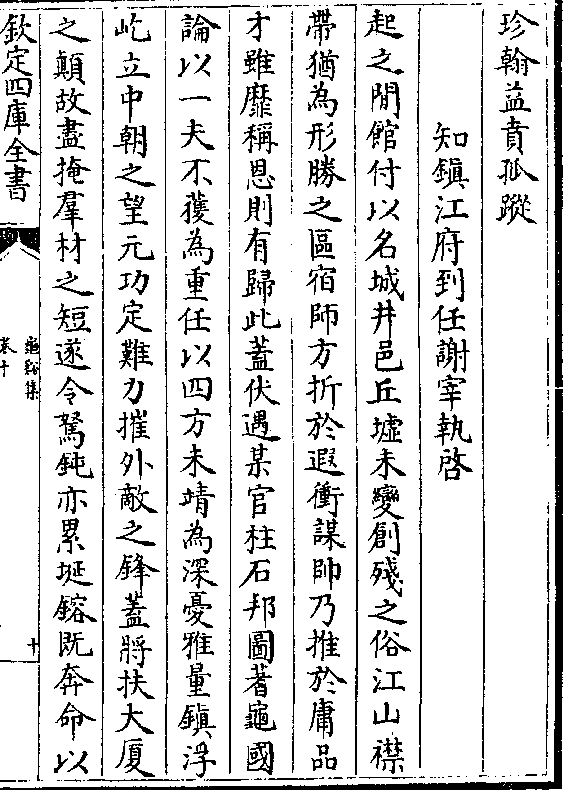 珍翰益賁孤蹤
知鎮江府到任謝宰執啓
起之閒館付以名城井邑丘墟未變創殘之俗江山襟
帶猶為形勝之區宿師方折於遐衝謀帥乃推於庸品
才雖靡稱恩則有歸此蓋伏遇某官柱石邦圖蓍龜國
論以一夫不獲為重任以四方未靖為深憂雅量鎮浮
屹立中朝之望元功定難力摧外敵之鋒蓋將扶大厦
之顛故盡掩羣材之短遂令駑鈍亦累埏鎔既奔命以
欽定四庫全書
龜谿集
卷十
十